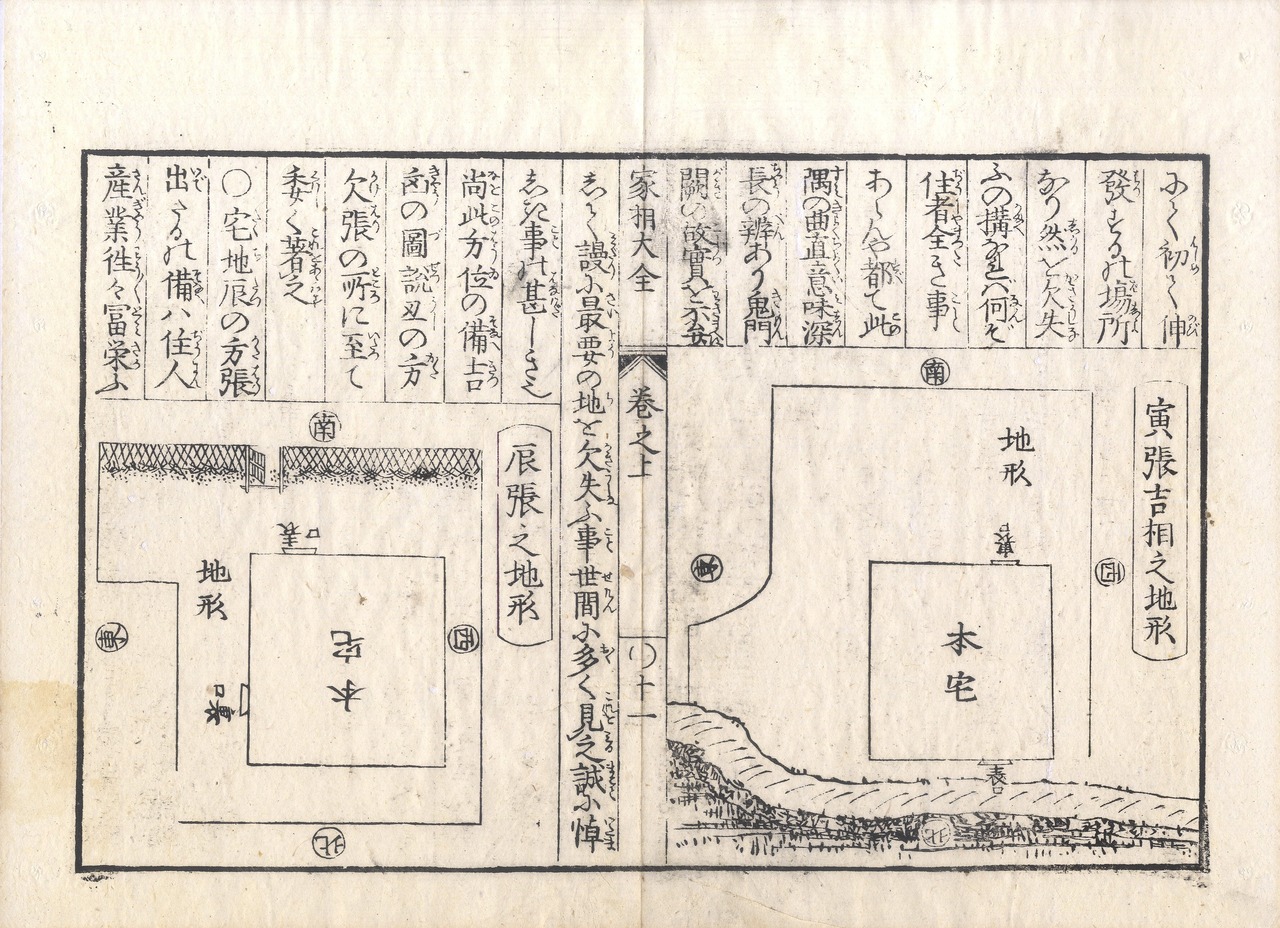 みて初て伸
發するの場所
なり然ど欠失
ふの構なれば何ぞ
住者全き事
あらんや都て此
隅の曲直意味深
長の辨あり鬼門
闕の故實を示
寅張吉相之地形
南
地形
裏口
西
東
本宅
表口
北
家相大全
巻之上
〇十一
しく謾に最要の地を欠失ふ事世間に多く見之誠に悼
しき事の甚しき也
尚此方位の備吉
凶の圖説丑の方
欠張の所に至て
委く著之
〇宅地辰の方張
出たるの備ハ住人
産業徃々冨栄ふ
辰張之地形
南
表口
地形
本宅
西
東
裏口
北